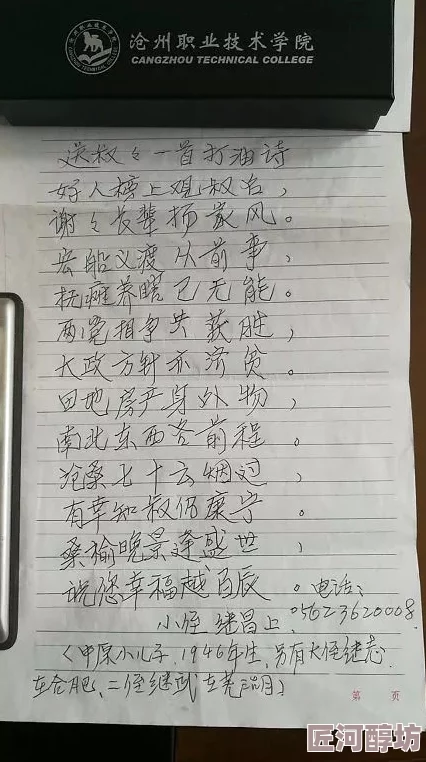 沧州职业技术学院
CANGZHOU TECHNICAL COLLEGE
送叔々一首打油诗
好人榜上观叔名，
谢々长辈扬家风。
宏船义渡从前事，
抚瘫养瞎已无能。
两党相争共获胜，
大政方针亦济贫。
田地房产身外物，
南北东西各前程。
沧桑七十云烟过，
有幸知叔仍康宁。
桑榆晚景逢盛世，
祝您幸福越百辰。电话：
05623620008.
小侄 继昌上.
（甲原小儿子，1946年生，另有大侄继志.
在合肥、二侄继武在芜湖）
第 页
匠河醇坊